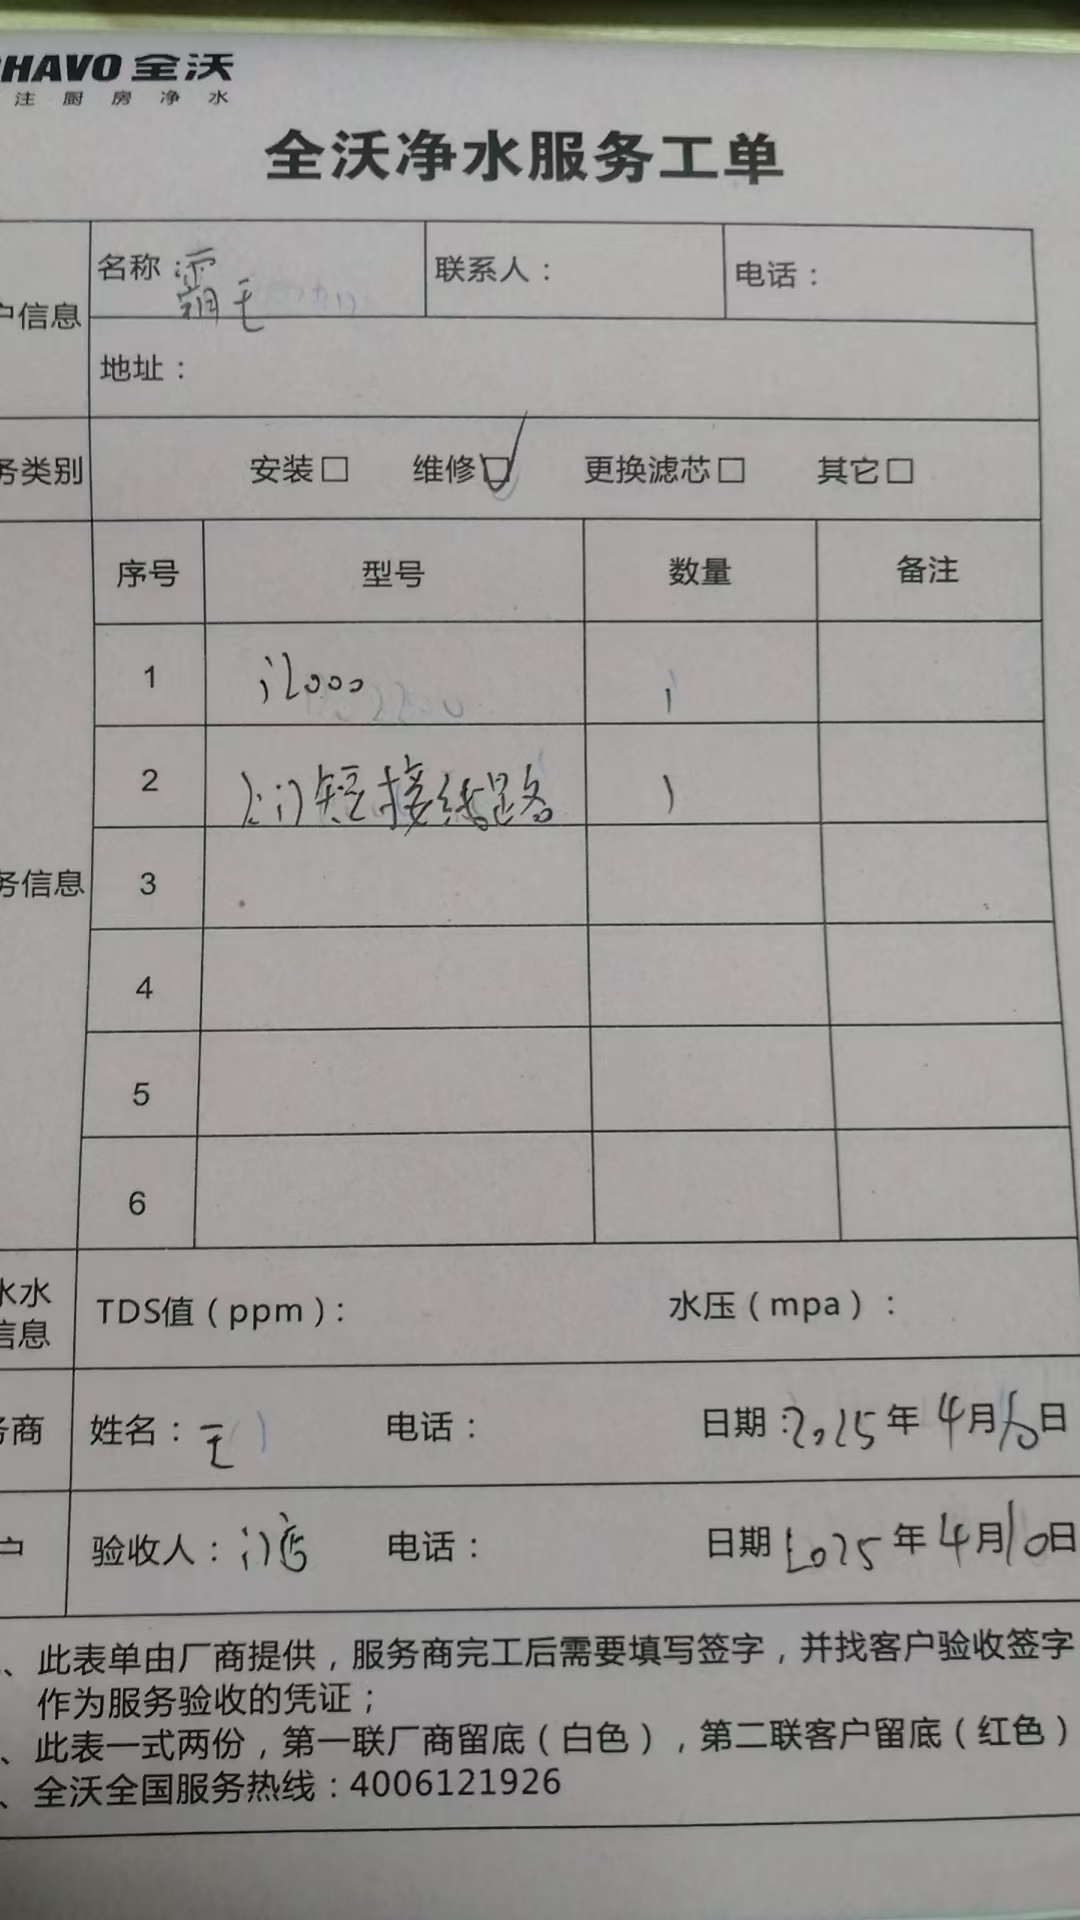 HAVO 全沃
注厨房净水
全沃净水服务工单
户信息
名称: 霸王
联系人:
电话:
地址:
务类别
安装□ 维修☑ 更换滤芯□ 其它□
序号 型号 数量 备注
1 i2000 1
2 上门短接线路 1
务信息
3
4
5
6
水水
信息
TDS值(ppm): 水压(mpa):
务商 姓名: 王 电话: 日期: 2025年4月10日
户 验收人: 门店 电话: 日期 2025年4月10日
、此表单由厂商提供,服务商完工后需要填写签字,并找客户验收签字
作为服务验收的凭证;
、此表一式两份,第一联厂商留底(白色),第二联客户留底(红色)
、全沃全国服务热线:4006121926